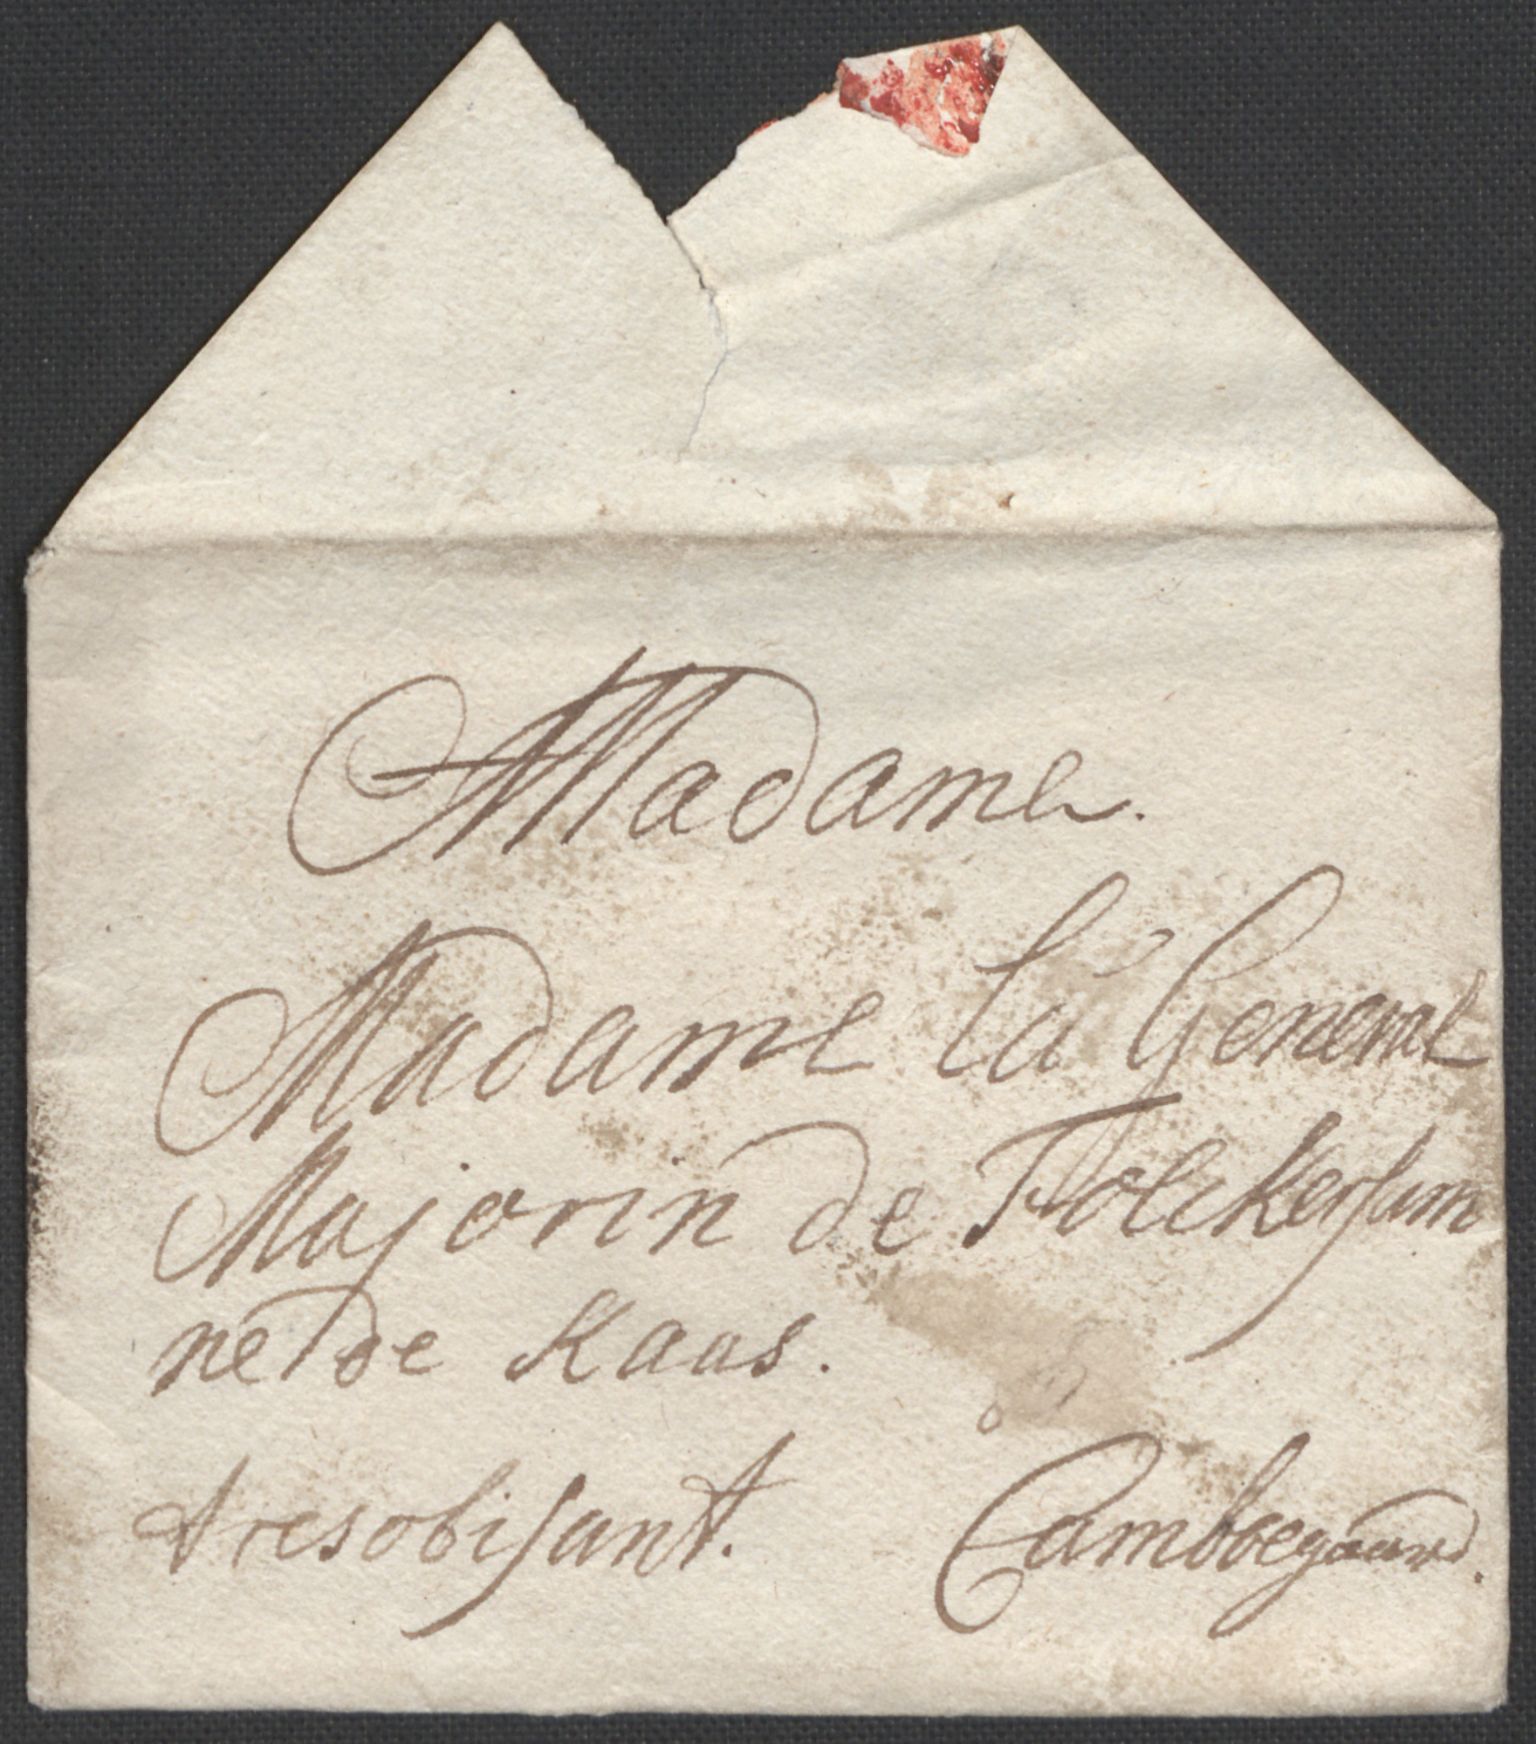 Madame.
Madame la General
Majorin de Folckersam
ne de Kaas.
tresobisant.
Camboegaard.